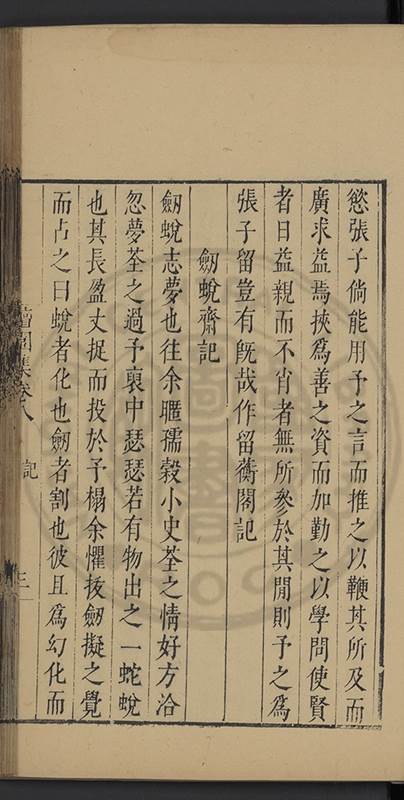 慾張子倘能用予之言而推之以鞭其所及而
廣求益焉挾為善之資而加勤之以學問使賢
者日益親而不肖者無所參於其間則予之為
張子留豈有旣哉作留蘅閣記
劒蛻齋記
劒蛻志夢也往余暱孺穀小史荃之情好方洽
忽夢荃之過予裏中瑟瑟若有物出之一蛇蛻
也其長盈丈捉而投於予榻余懼拔劒擬之覺
而占之曰蛻者化也劒者割也彼且為幻化而
集卷八
記
三